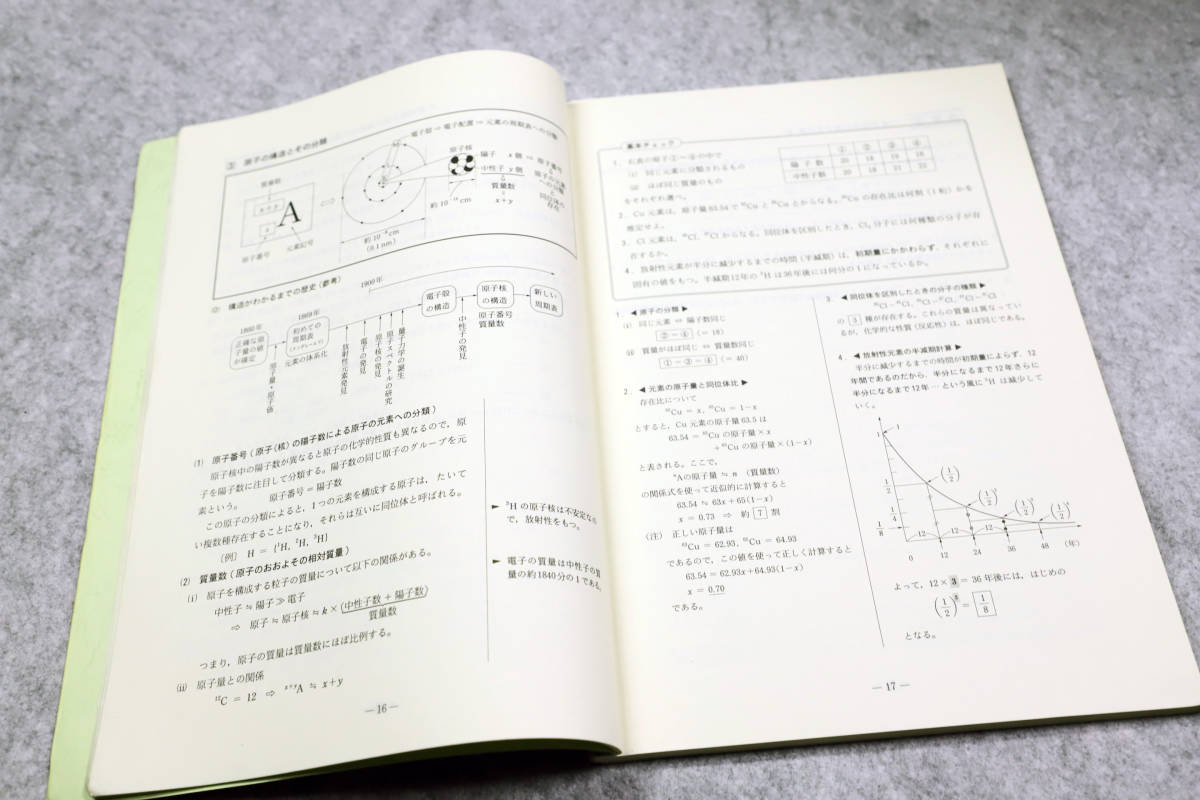 ③ 原子の構造とその分類
電子殻 ⇒ 電子配置 ⇒ 元素の周期表への分類
質量数
x+y
A
x
原子番号
元素記号
原子核
陽子 x個 ⇒ 原子番号
中性子 y個
質量数
x+y
原子の元素への分類
同位体の存在
約10⁻¹²cm
約10⁻⁸cm
(0.1nm)
構造がわかるまでの歴史(参考)
1900年
1860年
正確な原子量の値が確定
原子量・原子価
1869年
初めての周期表
(メンデレーエフ)
元素の体系化
放射性元素発見
電子の発見
原子核の発見
原子スペクトルの研究
量子力学の誕生
電子殻の構造
中性子の発見
原子核の構造
原子番号
質量数
新しい周期表
(1) 原子番号(原子(核)の陽子数による原子の元素への分類)
原子核中の陽子数が異なると原子の化学的性質も異なるので,原
子を陽子数に注目して分類する。陽子数の同じ原子のグループを元
素という。
原子番号=陽子数
この原子の分類によると,1つの元素を構成する原子は,たいて
い複数種存在することになり,それらは互いに同位体と呼ばれる。
〔例〕 H = {¹H, ²H, ³H}
(2) 質量数(原子のおおよその相対質量)
(i) 原子を構成する粒子の質量について以下の関係がある。
中性子 ≒ 陽子 ≫ 電子
⇒ 原子 ≒ 原子核 ≒ k × (中性子数 + 陽子数)
質量数
つまり,原子の質量は質量数にほぼ比例する。
(ii) 原子量との関係
¹²C = 12 ⇒ ˣ⁺ʸA ≒ x+y
► ³Hの原子核は不安定なの
で,放射性をもつ。
► 電子の質量は中性子の質
量の約1840分の1である。
—16—
基本チェック
1. 右表の原子①〜④の中で
(i) 同じ元素に分類されるもの
(ii) ほぼ同じ質量のもの
をそれぞれ選べ。
① ② ③ ④
陽子数 20 18 19 18
中性子数 20 21 22
2. Cu元素は,原子量63.54で⁶³Cuと⁶⁵Cuとからなる。⁶³Cuの存在比は何割(1桁)かを
推定せよ。
3. Cl元素は,³⁵Cl, ³⁷Clからなる。同位体を区別したとき,Cl₂分子には何種類の分子が存
在するか。
4. 放射性元素が半分に減少するまでの時間(半減期)は,初期量にかかわらず,それぞれに
固有の値をもつ。半減期12年の³Hは36年後には何分の1になっているか。
1. ◀ 原子の分類 ▶
(i) 同じ元素 ⇔ 陽子数同じ
②−④ (= 18)
(ii) 質量がほぼ同じ ⇔ 質量数同じ
①−③−④ (= 40)
2. ◀ 元素の原子量と同位体比 ▶
存在比について
⁶³Cu = x, ⁶⁵Cu = 1−x
とすると,Cu元素の原子量63.5は
63.54 = ⁶³Cuの原子量×x
+⁶⁵Cuの原子量×(1−x)
と表される。ここで,
ⁿAの原子量 ≒ n (質量数)
の関係式を使って近似的に計算すると
63.54 ≒ 63x+65(1−x)
x = 0.73 ⇒ 約 7 割
(注) 正しい原子量は
⁶³Cu = 62.93, ⁶⁵Cu = 64.93
であるので,この値を使って正しく計算すると
63.54 = 62.93x+64.93(1−x)
x = 0.70
である。
3. ◀ 同位体を区別したときの分子の種類 ▶
³⁵Cl−³⁵Cl, ³⁵Cl−³⁷Cl, ³⁷Cl−³⁷Cl
の 3 種が存在する。これらの質量は異なってい
るが,化学的な性質(反応性)は,ほぼ同じである。
4. ◀ 放射性元素の半減期計算 ▶
半分に減少するまでの時間が初期量によらず,12
年間であるのだから,半分になるまで12年さらに
半分になるまで12年…という風に³Hは減少して
いく。
1
1
1/2
1/4
1/8
(1/2)
(1/2)²
(1/2)³
(1/2)⁴
12 12 12 12
0 12 24 36 48 (年)
よって,12×3 = 36年後には,はじめの
(1/2)³ = 1/8
となる。
—17—